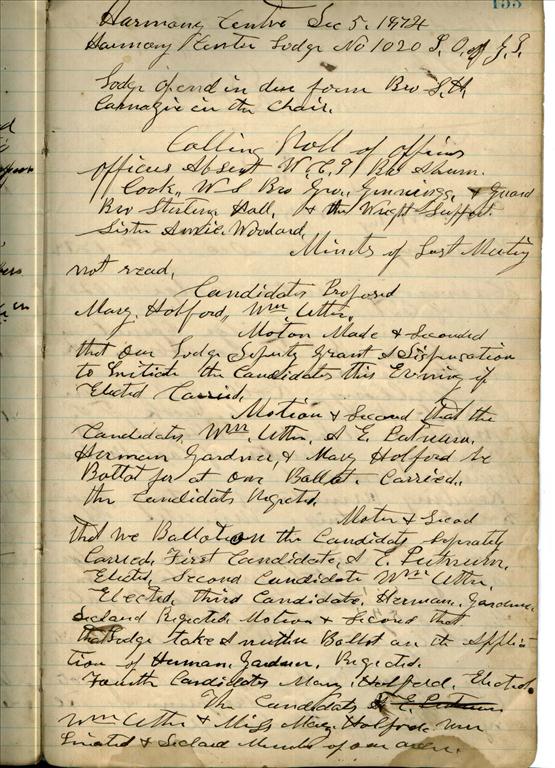 153
Harmony Centre Dec 5, 1874
Harmony Center Lodge No 1020 I, O, of G. T.
Lodge opend in due form Bro S. H.
Carnazie in the Chair.
Calling Roll of officers
officers Absent W. C. T Bro Abum.
Cook,, W S Bro Geo, Jennings, & Guard
Bro Sterling Hall, & the Wright Support
Sister Amelie, Woodard,
Minuts of Last Meeting
not read,
Candidates Proposed
Mary. Holford,, Wm, Utter,
Motion Made & Seconded
that our Lodge Deputy Grant A Dispensation
to Initiate the Candidates this Evening if
Elected Carried.
Motion & Second that the
Candidates, Wm, Utter, A E. Putnum,
Herman Gardner, & Mary Holford be
Ballot for at one Ballot. Carried.
the Candidats Rejected.
Moton & Secod
that we Ballot on the Candidats Seperately
Carried, First Candidate, A E, Putnum,
Elected, Second Candidate Wm Utter,
Elected, third Candidate, Herman, Gardner
declard Rejected Motion & Second that
the Lodge take Anuther Ballot on the Applica
tion of Herman, Gardner, Rejected.
Fourth Candidates Mary, Holford, Elected.
The Candidats A E Putnum
Wm Utter & Miss Mary Holford wer
Iniated & declard Members of our order.